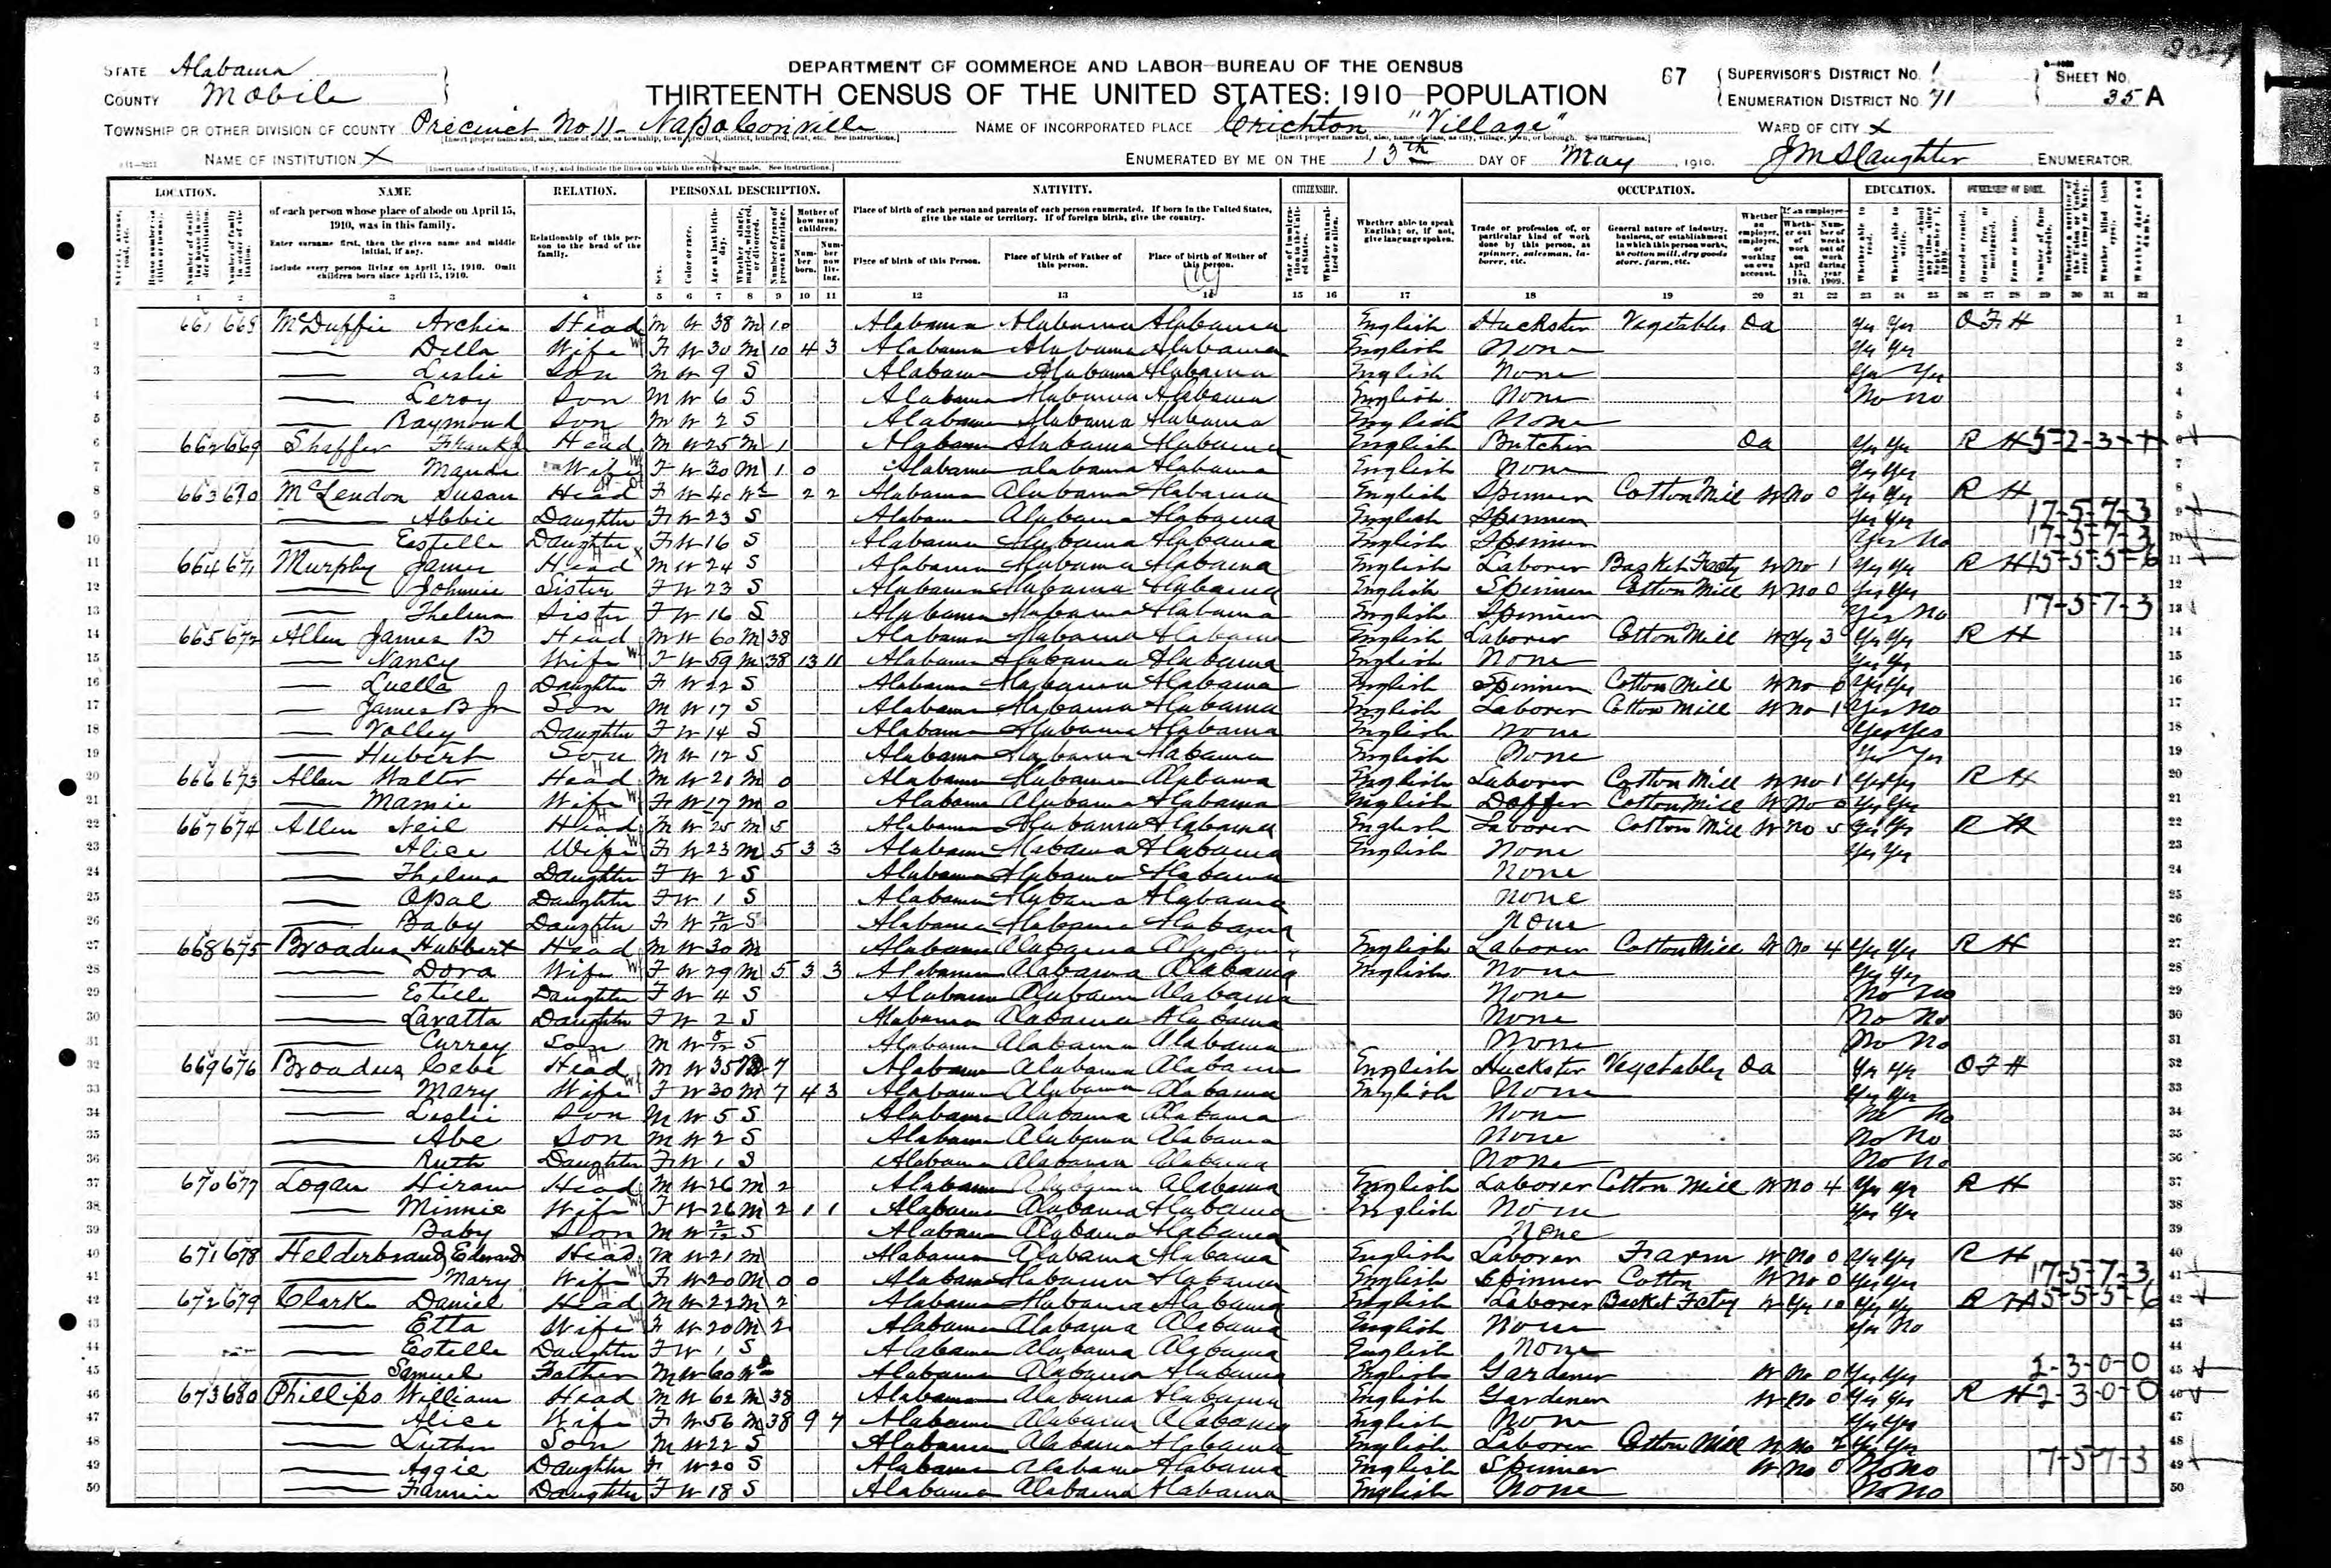 STATE Alabama
COUNTY Mobile
DEPARTMENT OF COMMERCE AND LABOR—BUREAU OF THE CENSUS
THIRTEENTH CENSUS OF THE UNITED STATES: 1910—POPULATION
67
SUPERVISOR'S DISTRICT NO. 1
ENUMERATION DISTRICT NO. 71
SHEET NO. 35 A
TOWNSHIP OR OTHER DIVISION OF COUNTY Precinct No 11 - Napoleonville
NAME OF INCORPORATED PLACE Crichton "Village"
WARD OF CITY X
NAME OF INSTITUTION X
ENUMERATED BY ME ON THE 13th DAY OF May, 1910. J M Slaughter ENUMERATOR.
LOCATION. NAME RELATION. PERSONAL DESCRIPTION. NATIVITY. CITIZENSHIP. OCCUPATION. EDUCATION. OWNERSHIP OF HOME.
of each person whose place of abode on April 15, 1910, was in this family.
Enter surname first, then the given name and middle initial, if any.
Include every person living on April 15, 1910. Omit children born since April 15, 1910.
Relationship of this person to the head of the family.
Mother of how many children.
Place of birth of each person and parents of each person enumerated. If born in the United States, give the state or territory. If of foreign birth, give the country.
Place of birth of this Person. Place of birth of Father of this person. Place of birth of Mother of this person.
Whether able to speak English; or, if not, give language spoken.
Trade or profession of, or particular kind of work done by this person, as spinner, salesman, laborer, etc.
General nature of industry, business, or establishment in which this person works, as cotton mill, dry goods store, farm, etc.
1 2 3 4 5 6 7 8 9 10 11 12 13 14 15 16 17 18 19 20 21 22 23 24 25 26 27 28 29 30 31 32
1 661 668 McDuffie Archie Head M W 38 M 10 Alabama Alabama Alabama English Huckster Vegetables Oa Yes Yes O F H 1
2 Della Wife F W 30 M 10 4 3 Alabama Alabama Alabama English None Yes Yes 2
3 Leslie Son M W 9 S Alabama Alabama Alabama English None Yes Yes 3
4 Leroy Son M W 6 S Alabama Alabama Alabama English None No No 4
5 Raymond Son M W 2 S Alabama Alabama Alabama English None 5
6 662 669 Shaffer Frank J Head M W 25 M 1 Alabama Alabama Alabama English Butcher Oa Yes Yes R H 6
7 Wife F W 30 M 1 0 Alabama Alabama Alabama English None Yes Yes 7
8 663 670 McLendon Susan Head F W Wd 2 2 Alabama Alabama Alabama English Spinner Cotton Mill W No 0 Yes Yes R H 8
9 Abbie Daughter F W 23 S Alabama Alabama Alabama English Spinner Yes Yes 17-5-7-3 9
10 Estelle Daughter F W 16 S Alabama Alabama Alabama English Spinner Yes No 17-5-7-3 10
11 664 671 Murphy James Head M W 24 S Alabama Alabama Alabama English Laborer Basket Facty W No 1 Yes Yes R H 15-5-5-6 11
12 Johnnie Sister F W 23 S Alabama Alabama Alabama English Spinner Cotton Mill W No 0 Yes Yes 12
13 Thelma Sister F W 16 S Alabama Alabama Alabama English Spinner Yes No 17-5-7-3 13
14 665 672 Allen James B Head M W 60 M 38 Alabama Alabama Alabama English Laborer Cotton Mill W Yes 3 Yes Yes R H 14
15 Nancy Wife F W 59 M 38 13 11 Alabama Alabama Alabama English None Yes Yes 15
16 Luella Daughter F W 22 S Alabama Alabama Alabama English Spinner Cotton Mill W No 0 Yes Yes 16
17 James B Jr Son M W 17 S Alabama Alabama Alabama English Laborer Cotton Mill W No 1 Yes No 17
18 Volley Daughter F W 14 S Alabama Alabama Alabama English None Yes Yes 18
19 Hubert Son M W 12 S Alabama Alabama Alabama English None Yes Yes 19
20 666 673 Allen Walter Head M W 21 M 0 Alabama Alabama Alabama English Laborer Cotton Mill W No 1 Yes Yes R H 20
21 Mamie Wife F W 17 M 0 Alabama Alabama Alabama English Doffer Cotton Mill W No 0 Yes Yes 21
22 667 674 Allen Neil Head M W 25 M 5 Alabama Alabama Alabama English Laborer Cotton Mill W No 5 Yes Yes R H 22
23 Alice Wife F W 23 M 5 3 3 Alabama Alabama Alabama English None Yes Yes 23
24 Thelma Daughter F W 2 S Alabama Alabama Alabama None 24
25 Opal Daughter F W 1 S Alabama Alabama Alabama None 25
26 Baby Daughter F W 2/12 S Alabama Alabama Alabama None 26
27 668 675 Broadus Hubbert Head M W 30 M Alabama Alabama Alabama English Laborer Cotton Mill W No 4 Yes Yes R H 27
28 Dora Wife F W 29 M 5 3 3 Alabama Alabama Alabama English None Yes Yes 28
29 Estelle Daughter F W 4 S Alabama Alabama Alabama None No No 29
30 Lavatta Daughter F W 2 S Alabama Alabama Alabama None No No 30
31 Currey Son M W S Alabama Alabama Alabama None No No 31
32 669 676 Broadus Cebe Head M W 35 7 Alabama Alabama Alabama English Huckster Vegetables Oa Yes Yes O F H 32
33 Mary Wife F W 30 M 7 4 3 Alabama Alabama Alabama English None Yes Yes 33
34 Leslie Son M W 5 S Alabama Alabama Alabama None No No 34
35 Abe Son M W 2 S Alabama Alabama Alabama None No No 35
36 Ruth Daughter F W 1 S Alabama Alabama Alabama None No No 36
37 670 677 Logan Hiram Head M W 26 M 2 Alabama Alabama Alabama English Laborer Cotton Mill W No 4 Yes Yes R H 37
38 Minnie Wife F W 26 M 2 1 1 Alabama Alabama Alabama English None Yes Yes 38
39 Baby Son M W 2/12 S Alabama Alabama Alabama None 39
40 671 678 Helderbrand Edward Head M W 21 M Alabama Alabama Alabama English Laborer Farm W No 0 Yes Yes R H 40
41 Mary Wife F W 20 M 0 0 Alabama Alabama Alabama English Spinner Cotton W No 0 Yes Yes 17-5-7-3 41
42 672 679 Clark Daniel Head M W 22 M 2 Alabama Alabama Alabama English Laborer Basket Fctry W Yes 10 Yes Yes R H 15-5-5-6 42
43 Etta Wife F W 20 M 2 Alabama Alabama Alabama English None Yes No 43
44 Estelle Daughter F W 1 S Alabama Alabama Alabama English None 44
45 Samuel Father M W 60 Wd Alabama Alabama Alabama English Gardener W No 0 Yes Yes 2-3-0-0 45
46 673 680 Phillips William Head M W 62 M 38 Alabama Alabama Alabama English Gardener W No 0 Yes Yes R H 2-3-0-0 46
47 Alice Wife F W 56 M 38 9 7 Alabama Alabama Alabama English None Yes Yes 47
48 Luther Son M W 22 S Alabama Alabama Alabama English Laborer Cotton Mill W No 2 Yes Yes 48
49 Aggie Daughter F W 20 S Alabama Alabama Alabama English Spinner W No 0 No No 17-5-7-3 49
50 Fannie Daughter F W 18 S Alabama Alabama Alabama English None No No 50